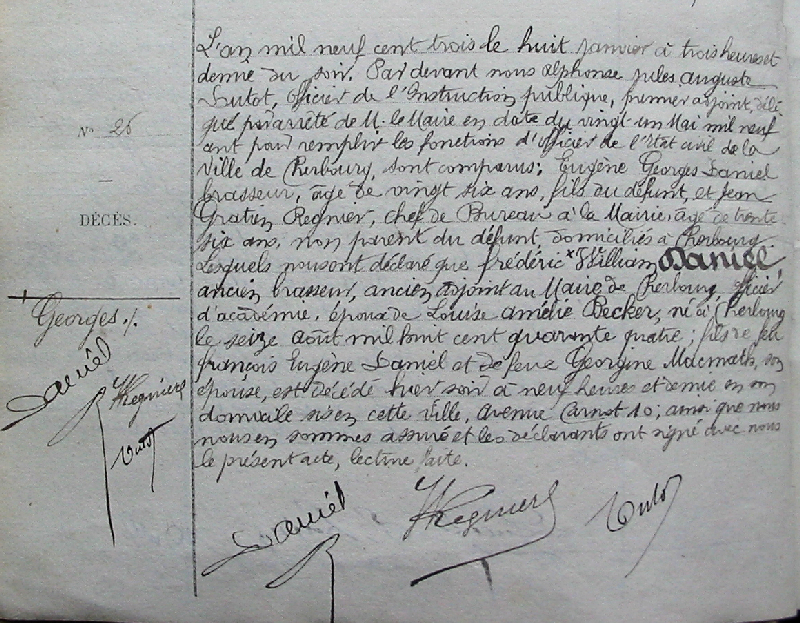 N° 26
DÉCÈS.
Georges ./.
Daniël
JRegnier
Lutot
L'an mil neuf cent trois le huit janvier à trois heures et
demie du soir. Par devant nous Alphonse Jules Auguste
Lutot, officier de l'Instruction publique, premier adjoint, délé
gué par arrêté de M. le Maire en date du vingt un Mai mil neuf
cent pour remplir les fonctions d'officier de l'état civil de la
Ville de Cherbourg, sont comparus; Eugène Georges Daniel
brasseur, âgé de vingt six ans, fils du défunt, et Jean
Gratien Regnier, chef de Bureau à la Mairie, âgé de trente
six ans, non parent du défunt, domiciliés à Cherbourg.
Lesquels nous ont déclaré que frédéric × William Daniel
ancien brasseur, ancien adjoint au Maire de Cherbourg, officier
d'académie, époux de Louise Amélie Becker, né à Cherbourg
le seize août mil huit cent quarante quatre; fils de feu
françois Eugène Daniel et de feue Georgine Macmath, son
épouse, est décédé hier soir à neuf heures et demie en son
domicile sis en cette ville, avenue Carnot 10; ainsi que nous
nous en sommes assuré et les déclarants ont signé avec nous
le présent acte, lecture faite.
Daniël JRegnier Lutot